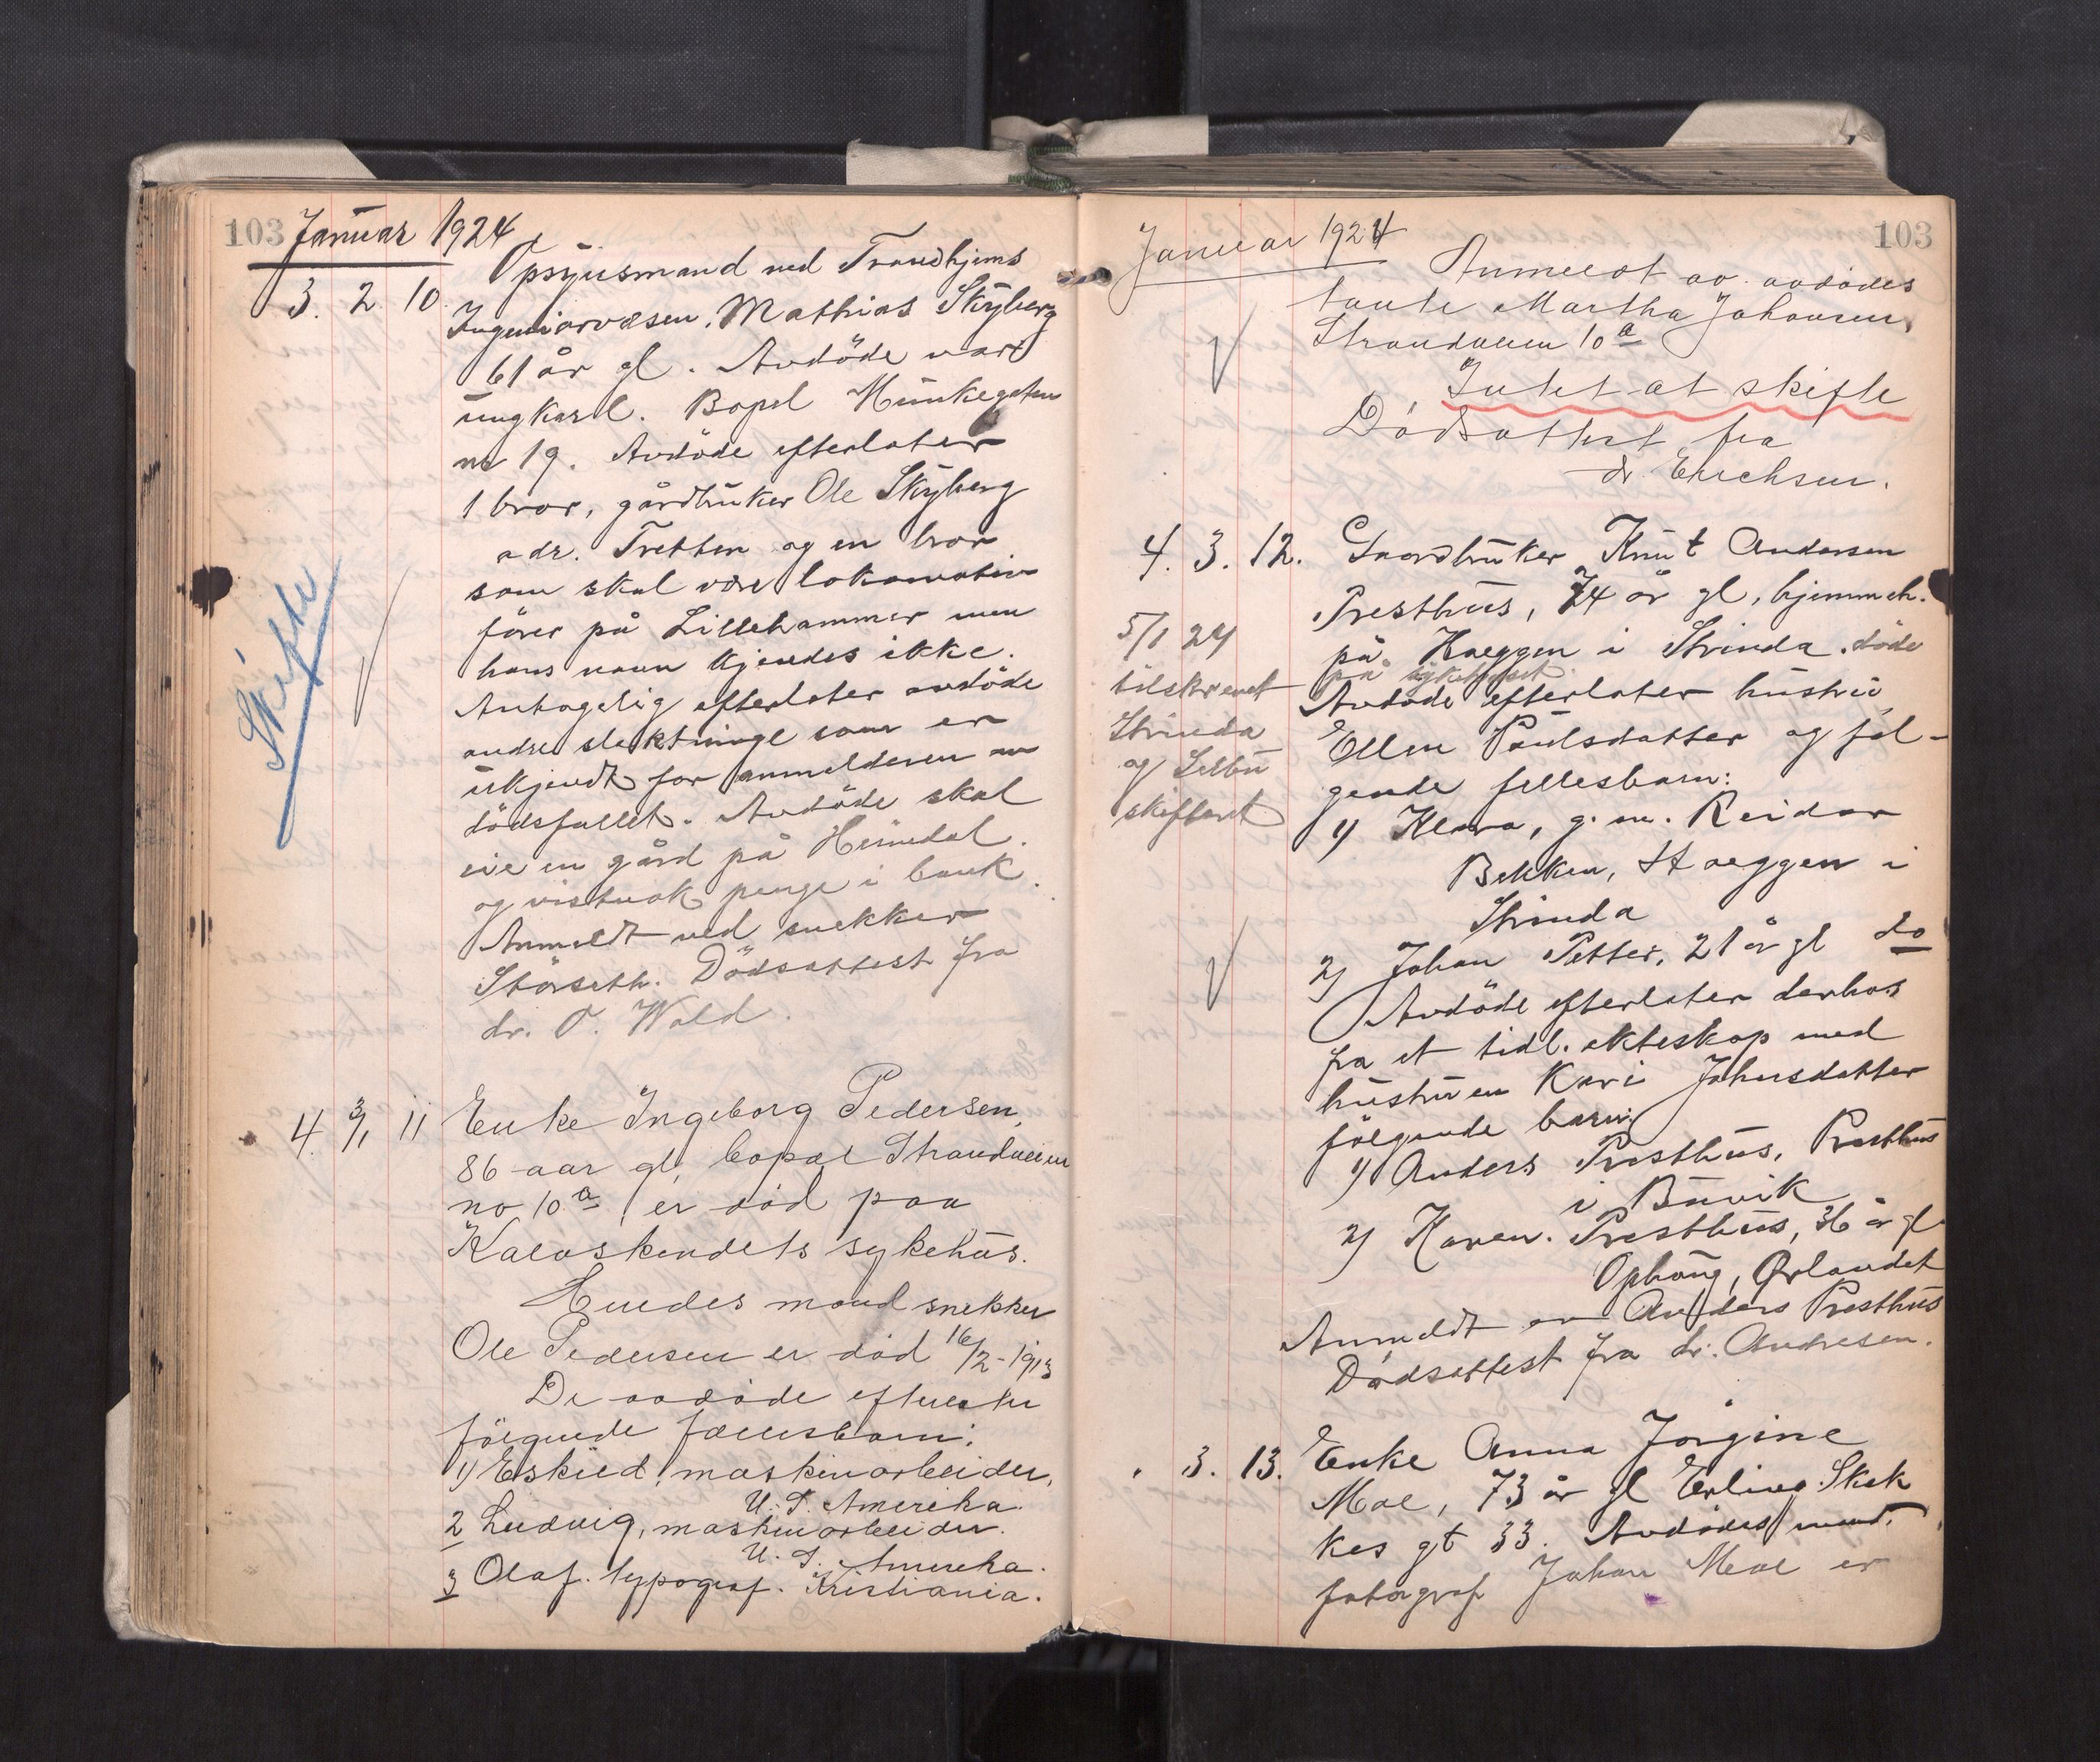 103 Januar 1924
3. 2. 10. Opsynsmand ved Trondhjems
Ingeniørvæsen, Mathias Skyberg
61 år gl. Avdöde var
ungkarl. Bopel Munkegaten
no 19. Avdöde efterlater
1 bror, gårdbruker Ole Skyberg
adr. Tretten og en bror
som skal være lokomotiv
förer på Lillehammer men
hans navn kjendes ikke.
Antagelig efterlater avdöde
andre slektninge som er
ukjendt for anmelderen av
dödsfallet. Avdöde skal
eie en gård på Heimdal.
og vistnok penge i bank.
Anmeldt ved snekker
Störseth. Dödsattest fra
dr. O. Wold.
Skifte
4. 3/1 11 Enke Ingeborg Pedersen,
86 aar gl, bopæl Strandveien
no 10a, er död paa
Kalvskindets sykehus.
Hendes mand snekker
Ole Pedersen er död 16/2-1913
De avdöde efterlater
fölgende fællesbarn:
1) Eskild, maskinarbeider,
U. S. Amerika.
2 Ludvig, maskinarbeider.
U. S. Amerika.
3 Olaf. typograf. Kristiania.
Januar 1924 103
Anmeldt av avdödes
tante Martha Johansen,
Strandveien 10a
Intet at skifte
Dödsattest fra
dr Erichsen.
4. 3. 12. Gaardbruker Knut Andersen
Presthus, 74 år gl, hjemmeh.
på Hoeggen i Strinda. döde
på sykehuset
Avdöde efterlater hustru
Ellen Paulsdatter og föl-
gende fellesbarn:
1) Klara, g. m. Reidar
Bekken, Hoeggen i
Strinda
2) Johan Petter, 21 år gl do
Avdöde efterlater derhos
fra et tidl. ekteskap med
hustruen Kari Johnsdatter
fölgende barn:
1) Anders Presthus, Presthus
i Buvik
2) Karen Presthus, 36 år gl
Ophaug, Ørlandet
Anmeldt av Anders Presthus
Dödsattest fra dr. Andresen.
5/1 24
tilskrevet
Strinda
og Selbu
skifteret
. 3. 13. Enke Anna Jörgine
Moe, 73 år gl Erling Skak
kes gt 33. Avdödes mand,
fotograf Johan Moe er